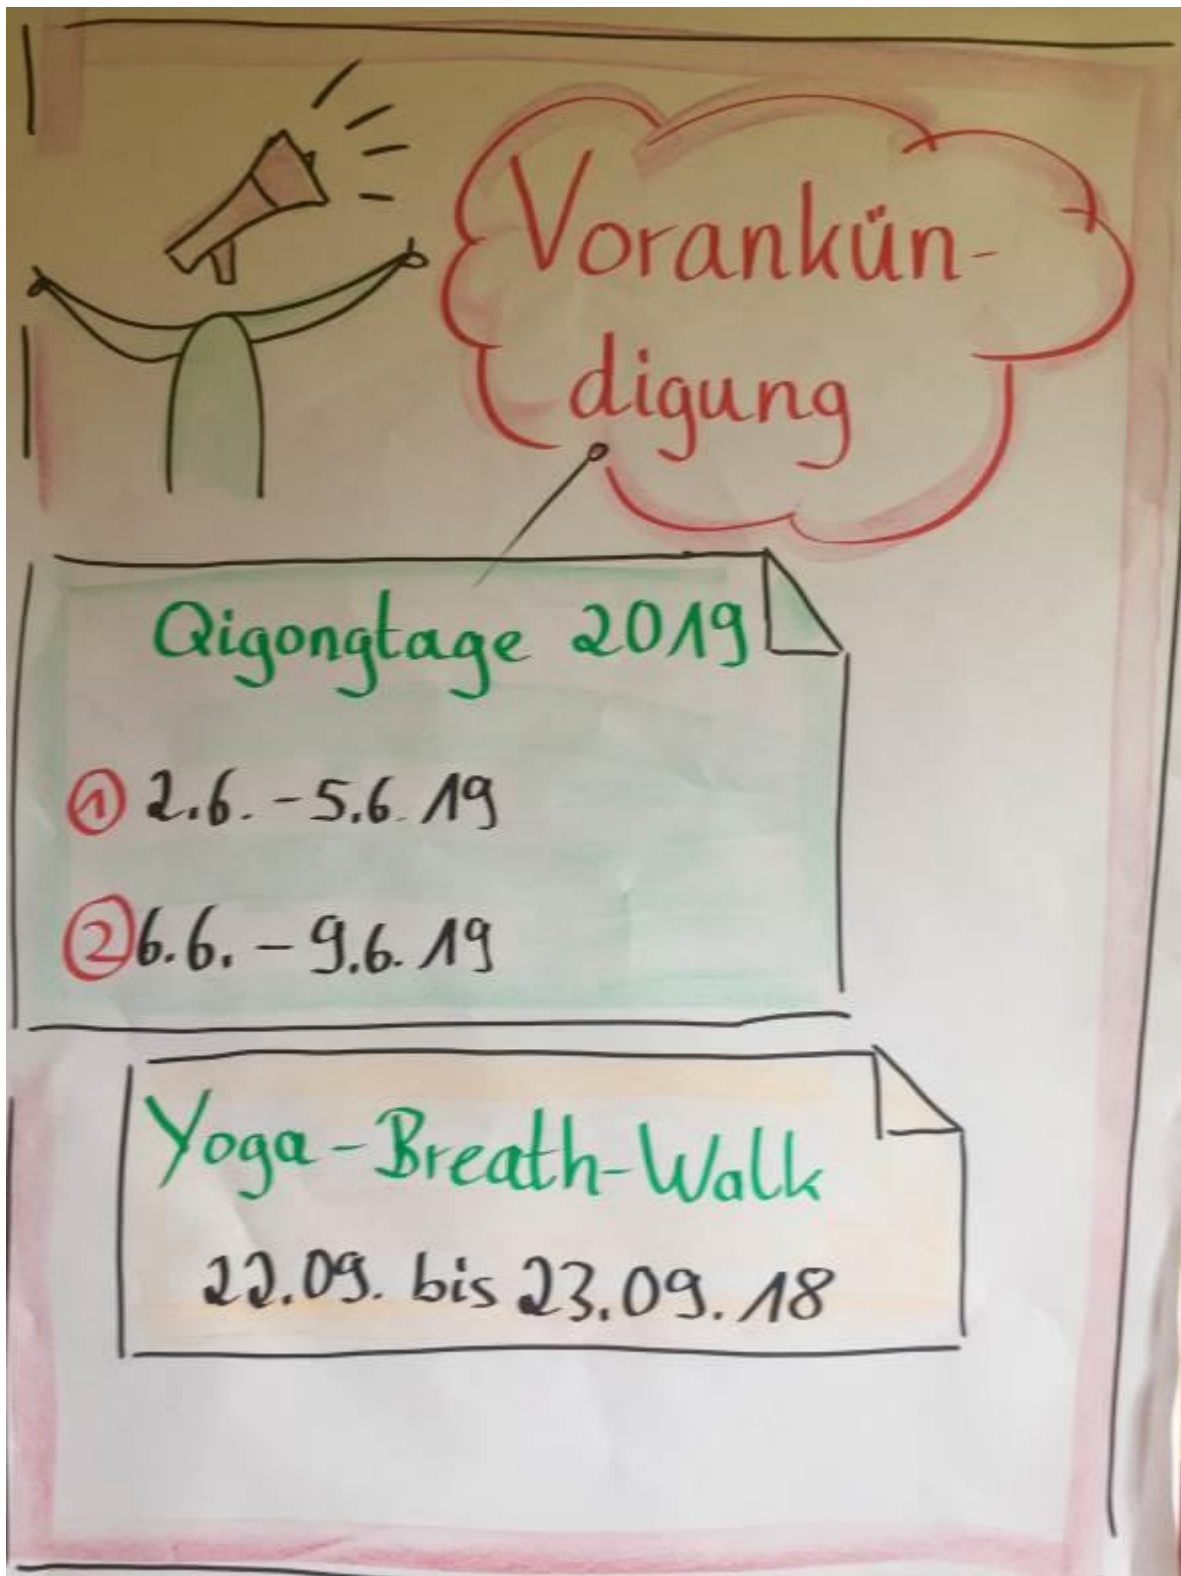 Vorankün-
digung
Qigongtage 2019
1 2.6. - 5.6. 19
2 6.6. - 9.6. 19
Yoga-Breath-Walk
22.09. bis 23.09.18